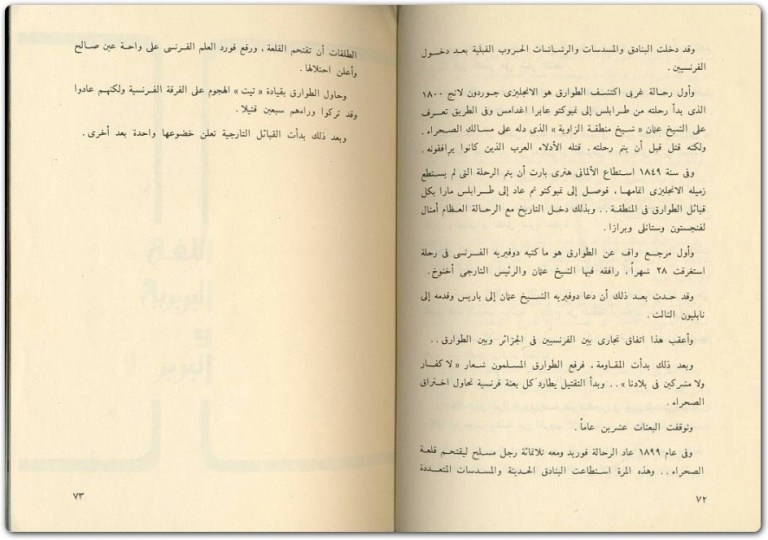 وقد دخلت البنادق والمسدسات والرشاشات الحروب القبلية بعد دخول
الفرنسيين .
وأول رحالة غربى اكتشف الطوارق هو الانجليزى جوردون لانج ١٨٠٠
الذى بدأ رحلته من طرابلس إلى تمبوكتو عابرا اغدامس وفى الطريق تعرف
على الشيخ عثمان « شيخ منطقة الزاوية » الذى دله على مسالك الصحراء .
ولكنه قتل قبل أن يتم رحلته . قتله الأدلاء العرب الذين كانوا يرافقونه .
وفى سنة ١٨٤٩ استطاع الألمانى هنرى بارت أن يتم الرحلة التى لم يستطع
زميله الانجليزى اتمامها ، فوصل إلى تمبوكتو ثم عاد إلى طرابلس مارا بكل
قبائل الطوارق فى المنطقة . . وبذلك دخل التاريخ مع الرحالة العظام أمثال
لفنجستون وستانلى وبرازا .
وأول مرجع واف عن الطوارق هو ما كتبه دوفيريه الفرنسى فى رحلة
استغرقت ٢٨ شهراً ، رافقه فيها الشيخ عثمان والرئيس التارجى أخنوخ .
وقد حدث بعد ذلك أن دعا دوفيريه الشيخ عثمان إلى باريس وقدمه إلى
نابليون الثالث .
وأعقب هذا اتفاق تجارى بين الفرنسيين فى الجزائر وبين الطوارق . .
وبعد ذلك بدأت المقاومة ، فرفع الطوارق المسلمون شعار « لا كفار
ولا مشركين فى بلادنا » . . وبدأ التقتيل يطارد كل بعثة فرنسية تحاول اختراق
الصحراء .
وتوقفت البعثات عشرين عاماً .
وفى عام ١٨٩٩ عاد الرحالة فوريد ومعه ثلاثمائة رجل مسلح ليقتحم قلعة
الصحراء . . وهذه المرة استطاعت البنادق الحديثة والمسدسات المتعددة
٧٢
الطلقات أن تقتحم القلعة ، ورفع فورد العلم الفرنسى على واحة عين صالح
وأعلن احتلالها .
وحاول الطوارق بقيادة « تيت » الهجوم على الفرقة الفرنسية ولكنهم عادوا
وقد تركوا وراءهم سبعين قتيلا .
وبعد ذلك بدأت القبائل التارجية تعلن خضوعها واحدة بعد أخرى .
٧٣